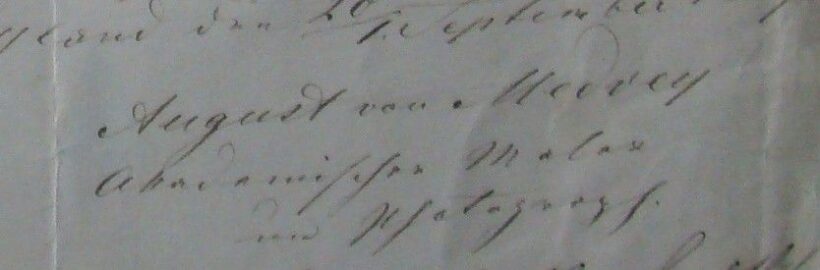 den 20/1. September
August von Medvey
Akademischer Maler
und Photograph.